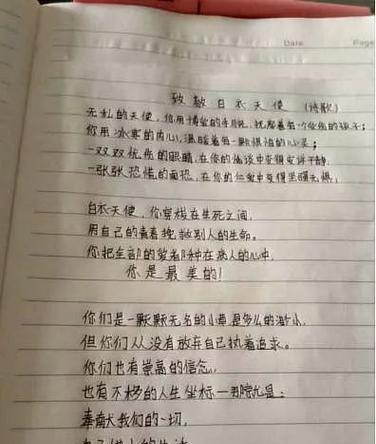 Date
Page
致敬白衣天使 (诗歌)
无私的天使,你用博爱的手腕,抚摩着每一个受伤的孩子;
你用冰寒的内心,温暖着每一颗惧怕的心灵;
一双双忧伤的眼睛,在你的
一张张恐慌的面孔,在你的仁爱中变得坚强无惧,
白衣天使,你穿梭在生死之间,
用自己的青春挽救别人的生命。
你把全部的爱都种在病人的心中,
你是最美的!
你们是一颗颗无名的小草是多么的渺小,
但你们从没有放弃自己执着追求。
你们也有崇高的信念,
也有不移的人生坐标一那就是:
奉献我们的一切,